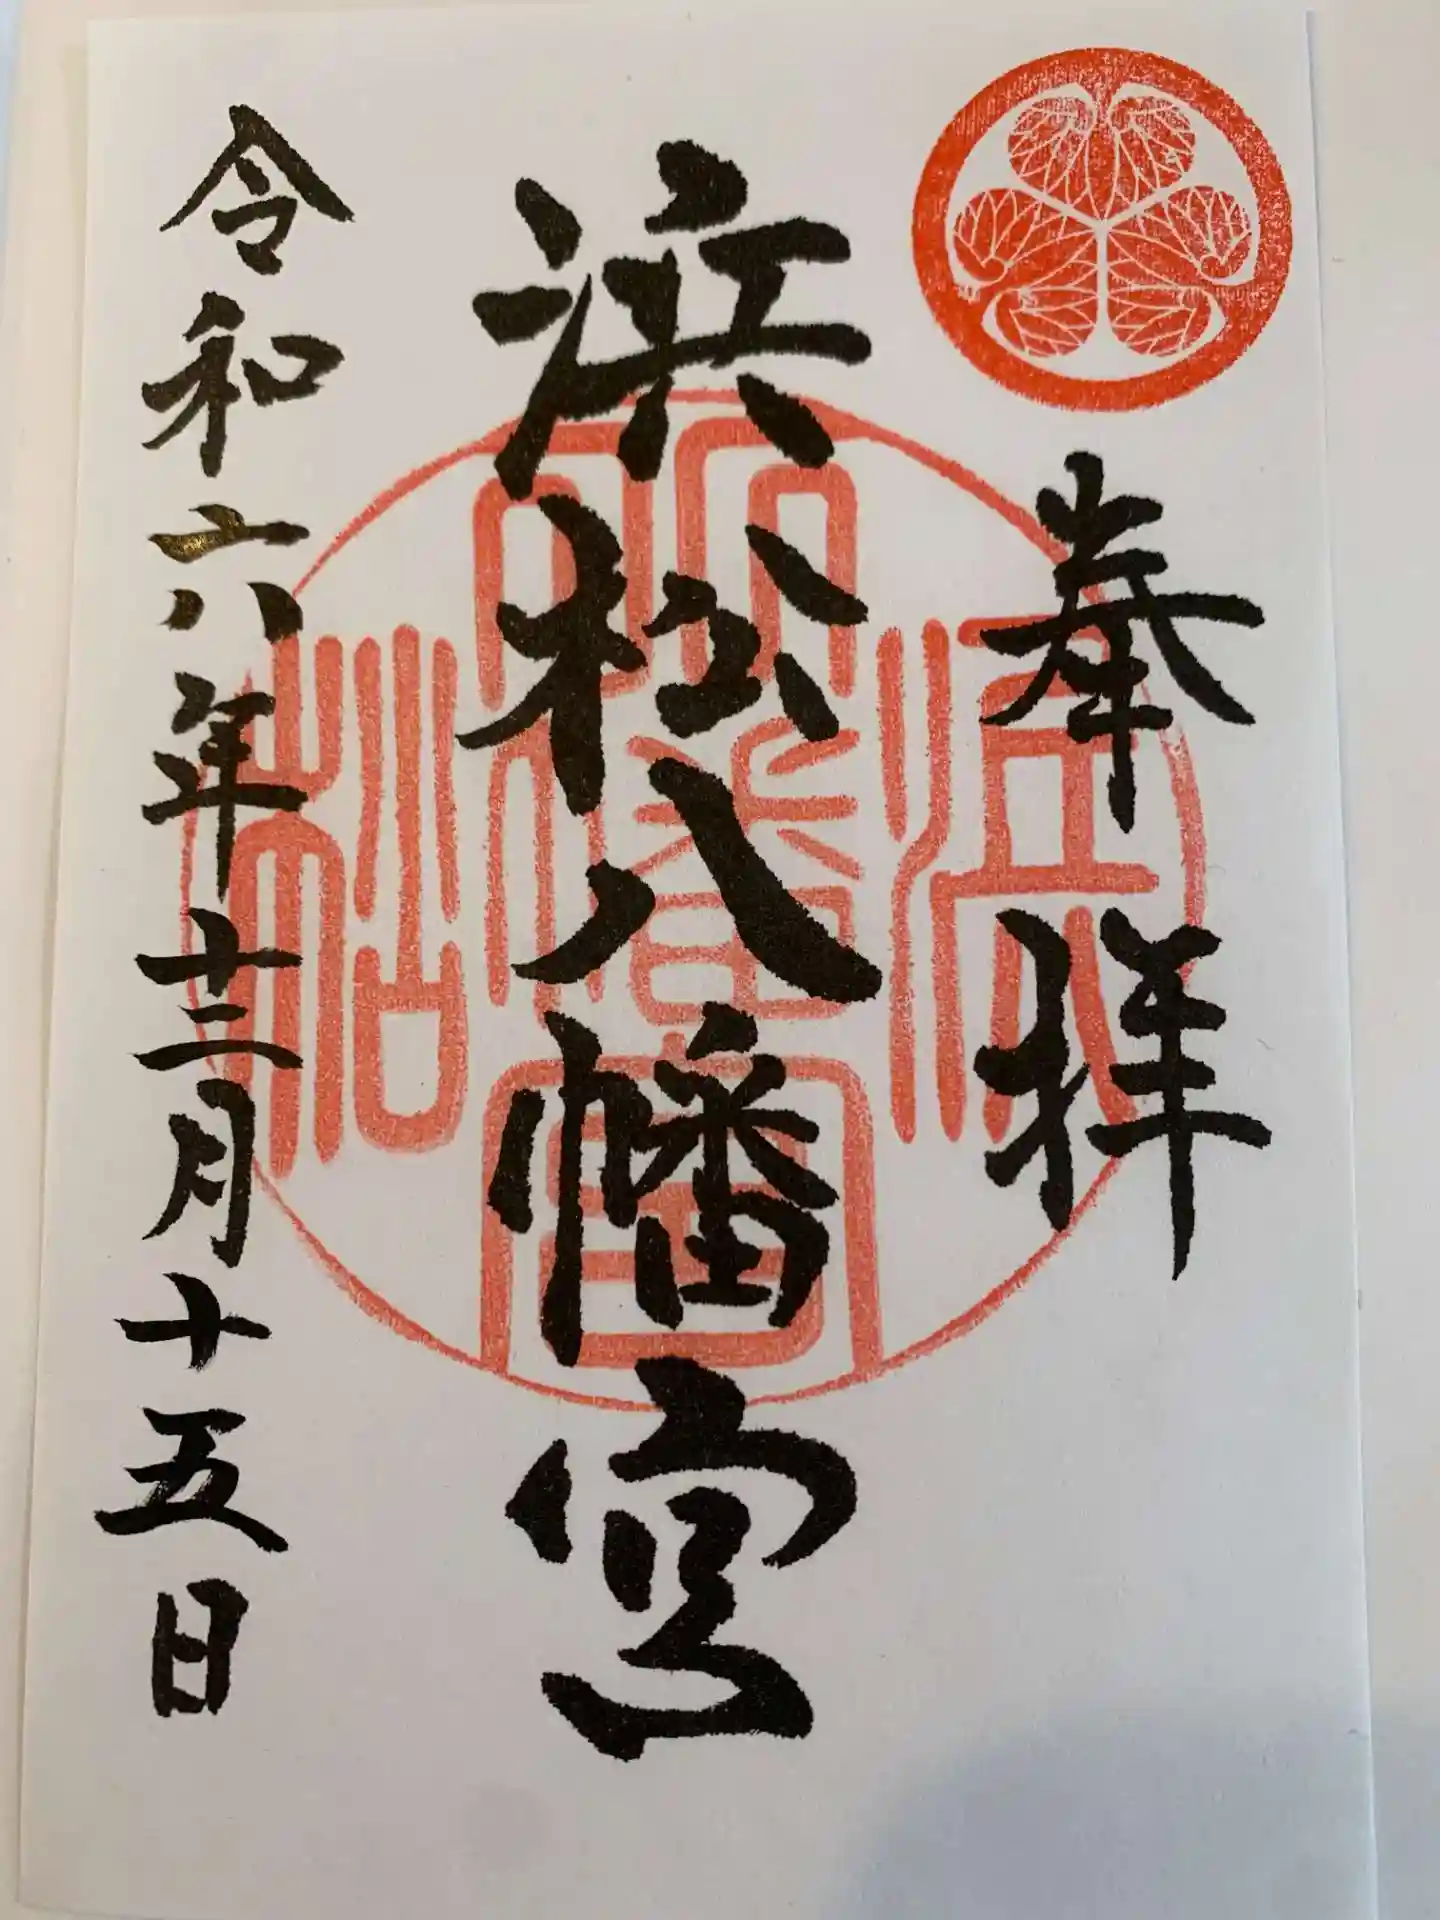 奉拝
浜松八幡宮
令和六年十二月十五日
浜松八幡宮